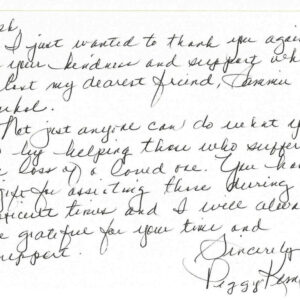 I just wanted to thank you again
your kindness and support wh
lost my dearest friend, Tammie
Not just anyone can do what y
by helping those who suffer
loss of a loved one. You ha
gift for assisting those during
fficult times and I will alwa
e grateful for your time and
upport.
Sincerely
Peggy